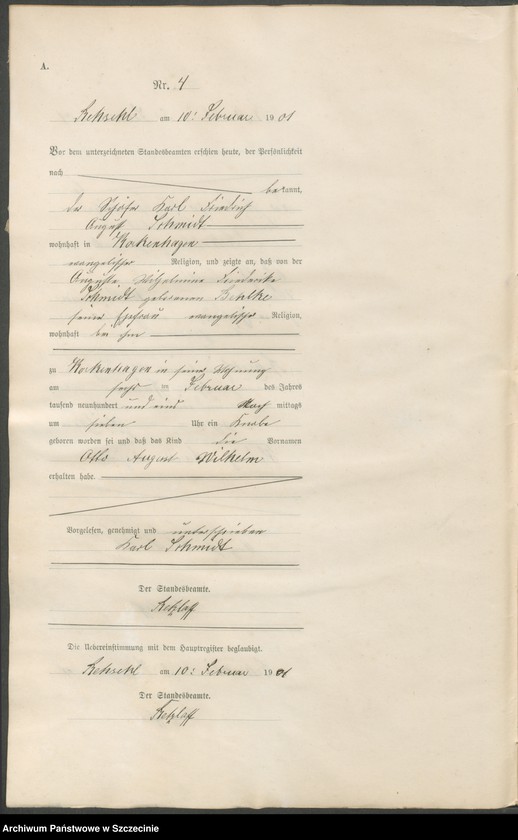 A.
Nr. 4
am 10: Februar 1901
Vor dem unterzeichneten Standesbeamten erschien heute, der Persönlichkeit
nach
bekannt,
der Schäfer Karl Friedrich
August Schmidt
wohnhaft in Rockenhagen
evangelischer Religion, und zeigte an, daß von der
Auguste Wilhelmine Friederike
Schmidt geborenen Behlke
seiner Ehefrau evangelischer Religion,
wohnhaft bei ihm
zu Rockenhagen in seiner Wohnung
am sechs ten Februar des Jahres
tausend neunhundert und eins Nach mittags
um sieben Uhr ein Knabe
geboren worden sei und daß das Kind die Vornamen
Otto August Wilhelm
erhalten habe.
Vorgelesen, genehmigt und unterschrieben
Karl Schmidt
Der Standesbeamte.
Retzlaff
Die Uebereinstimmung mit dem Hauptregister beglaubigt.
am 10: Februar 1901
Der Standesbeamte.
Retzlaff
Archiwum Państwowe w Szczecinie